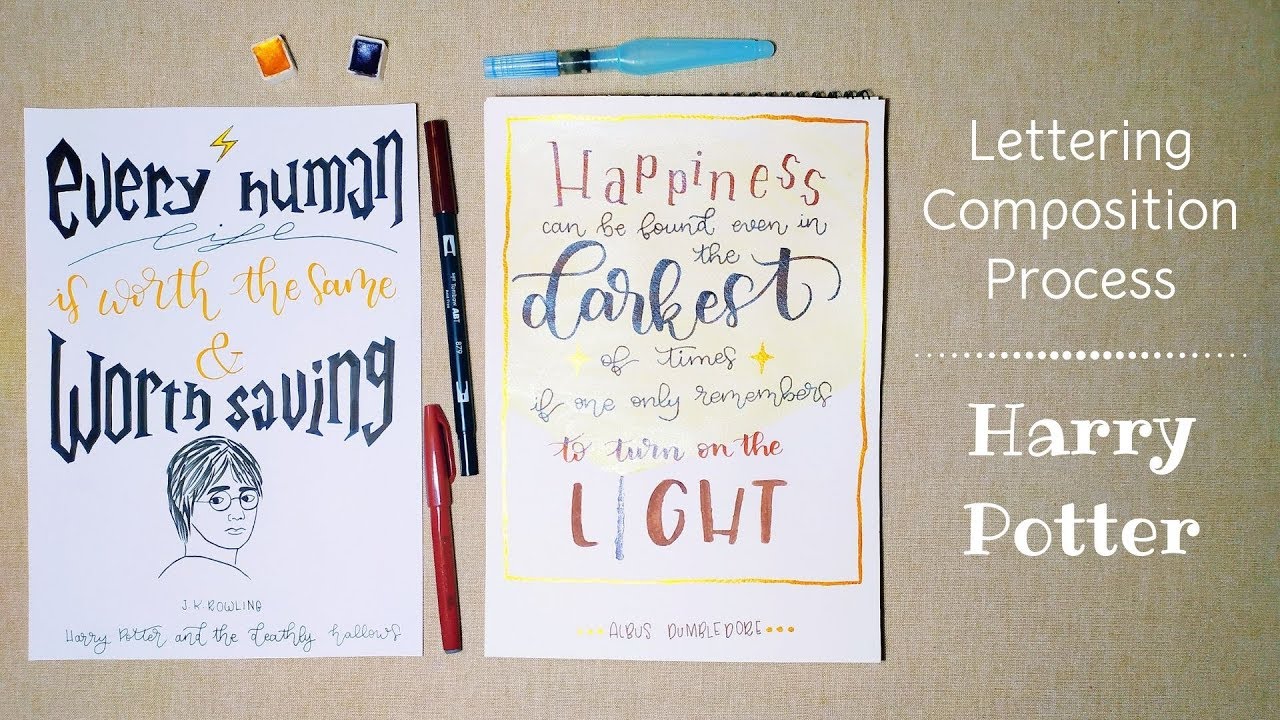 Every human
life
is worth the same
&
Worth saving
J.K.ROWLING
Harry Potter and the deathly hallows
Tombow ABT
879
Happiness
can be found even in
the
darkest
of times
if one only remembers
to turn on the
LIGHT
ALBUS DUMBLEDORE
Lettering
Composition
Process
Harry
Potter